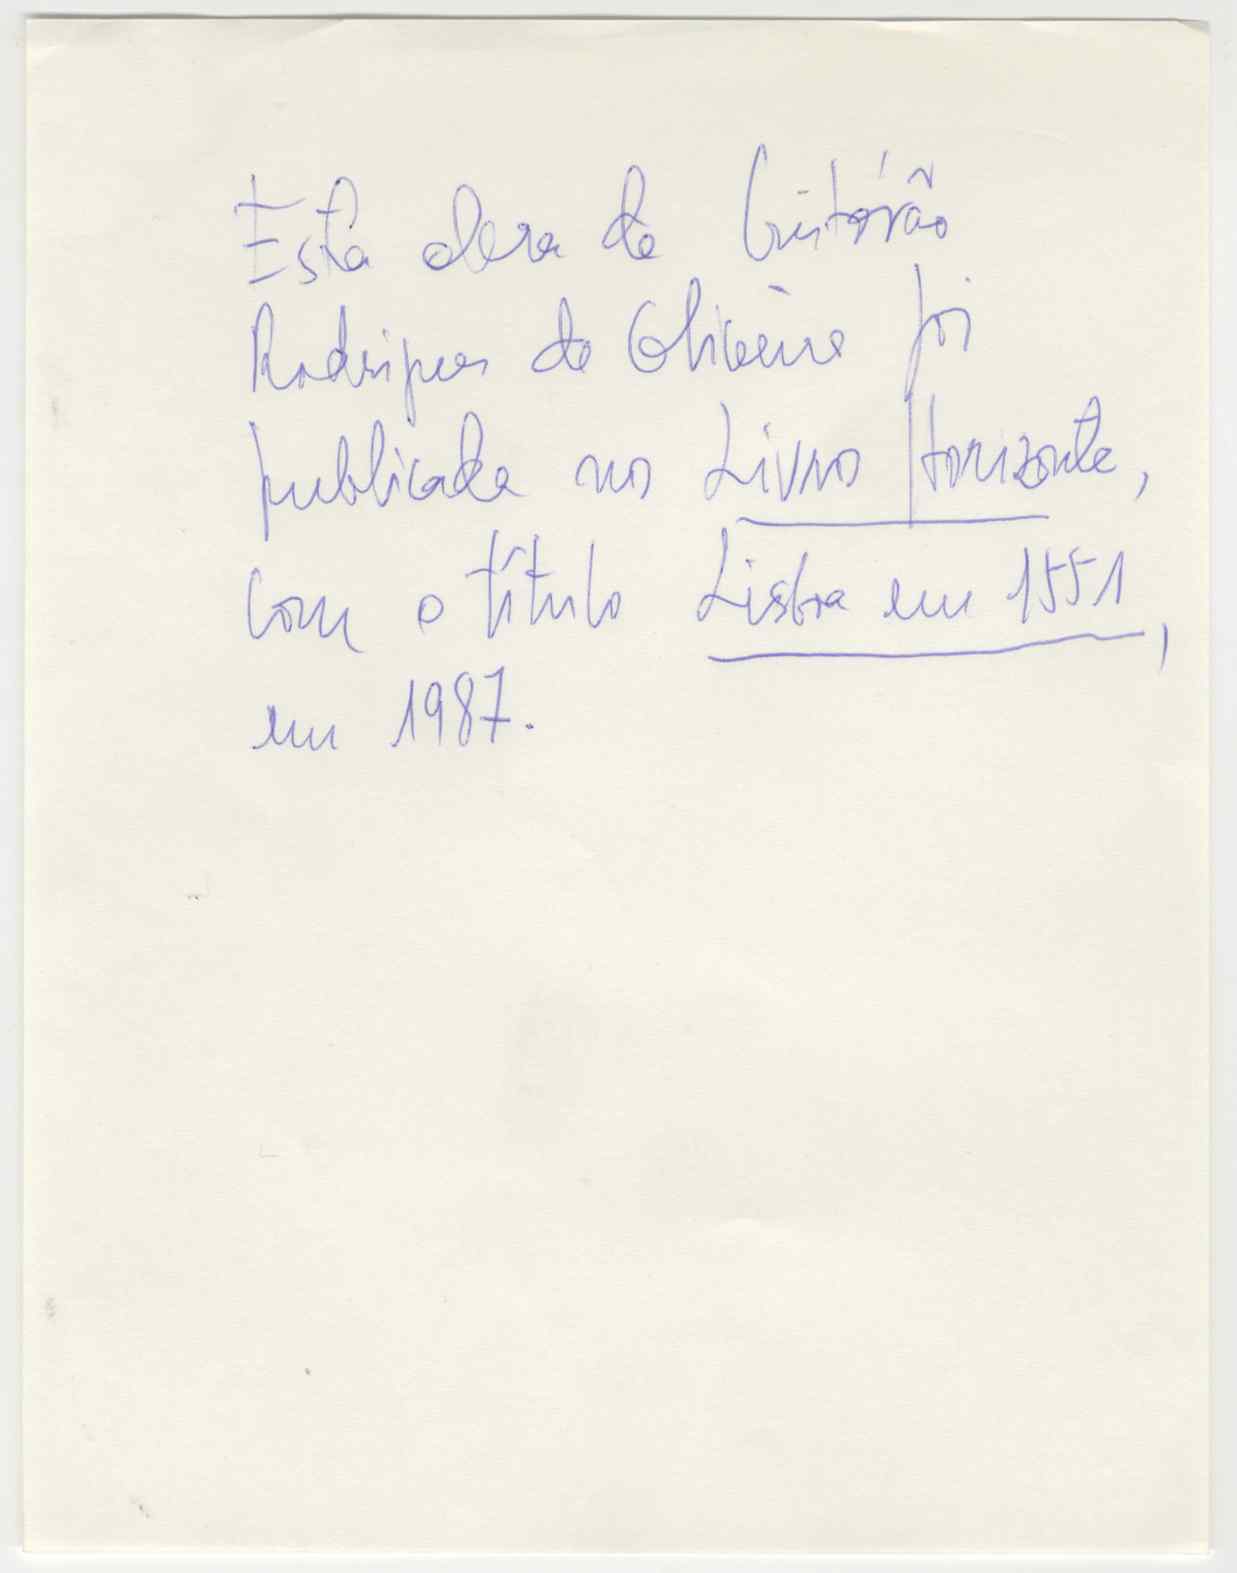 Esta obra de Cristóvão
Rodrigues de Oliveira foi
publicada no Livro Horizonte,
com o título Lisboa em 1551,
em 1987.